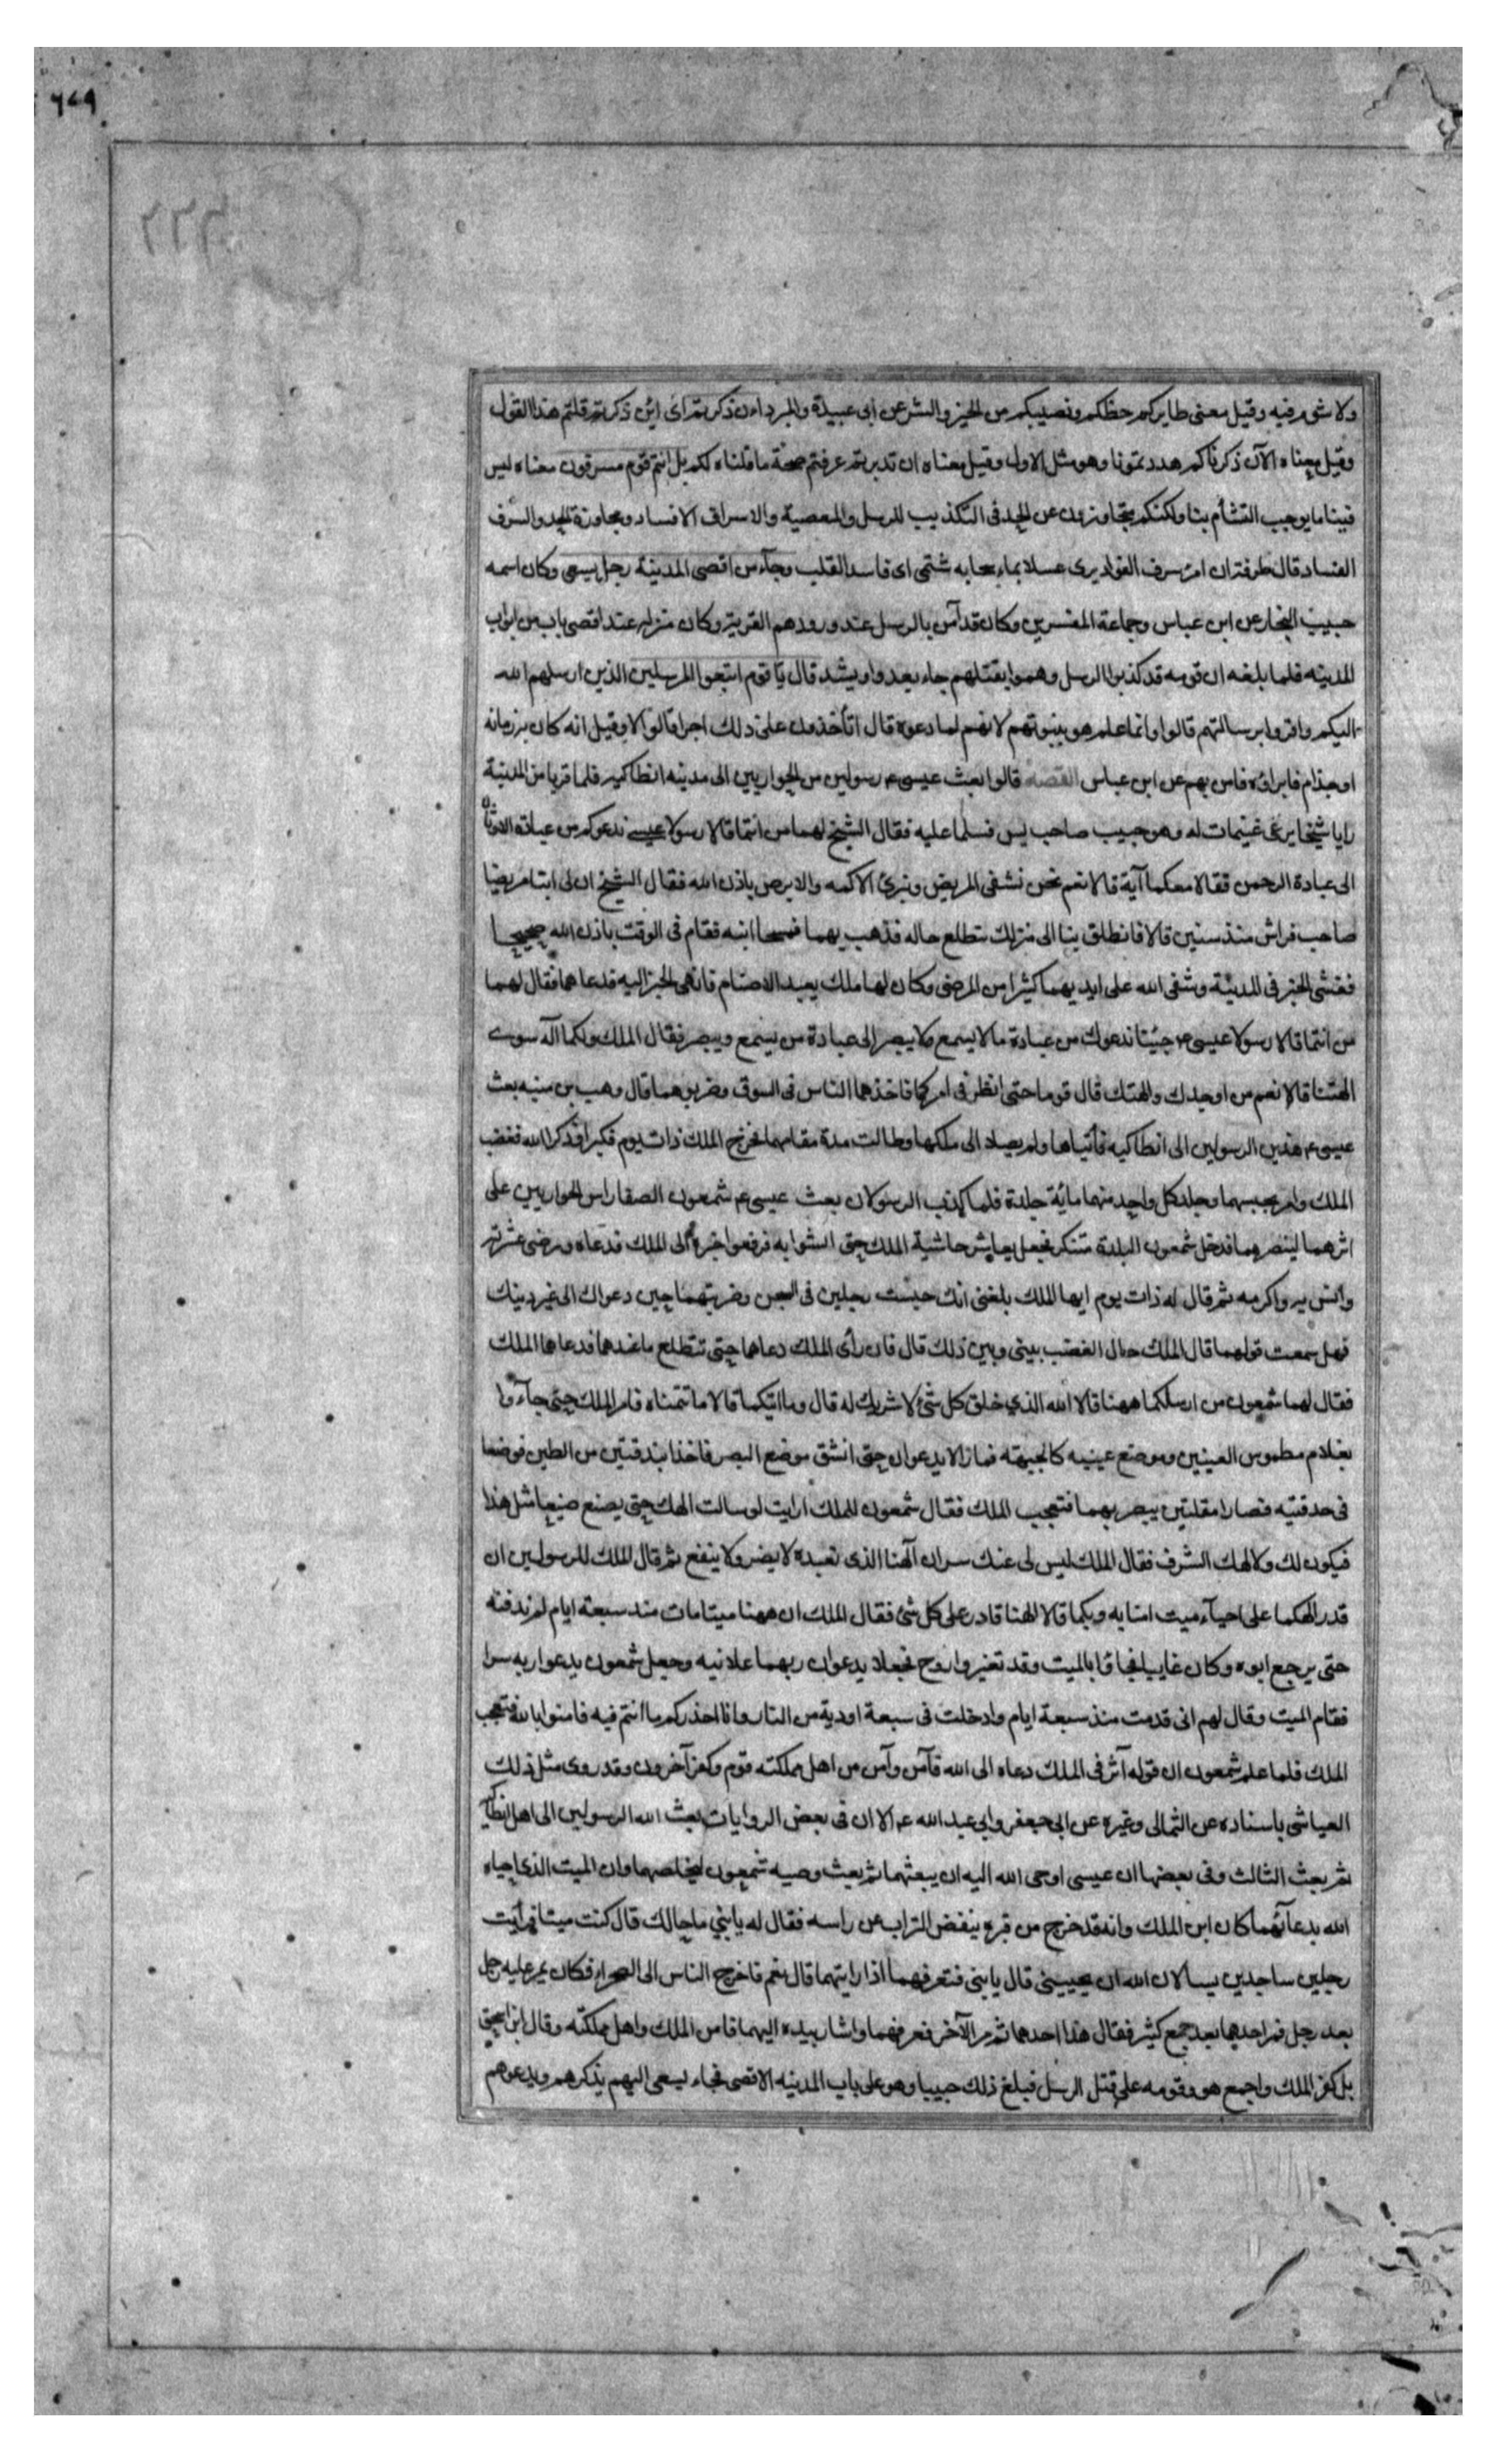 ٦٧٩
ولا شیء فیه وقیل معنی طایرکم حظکم ونصیبکم من الخیر والشر عن ابی عبیدة والمبرد اءن ذکرتم ای ائن ذکرتم قلتم هذا القول
وقیل معناه الآن ذکرناکم هددتمونا وهو مثل الاول وقیل معناه ان تدبرتم عرفتم صحة ما قلناه لکم بل انتم قوم مسرفون معناه لیس
فینا ما یوجب التشأم بنا ولکنکم متجاوزون عن الحد فی التکذیب للرسل والمعصیة والاسراف الافساد ومجاوزة الحد والسرف
الفساد قال طرفة ان امرء سرف الفواد یری عسلا بماء سحابه شتمی ای فاسد القلب وجآء من اقصی المدینة رجل یسعی وکان اسمه
حبیب النجار عن ابن عباس وجماعة المفسرین وکان قد آمن بالرسل عند ورودهم القریة وکان منزله عند اقصی باب من ابواب
المدینه فلما بلغه ان قومه قد کذبوا الرسل وهموا بقتلهم جاء یعدوا ویشد قال یا قوم اتبعوا المرسلین الذین ارسلهم الله
الیکم واقروا برسالتهم قالوا وانما علم هو بنبوتهم لانهم لما دعوه قال اتأخذون علی ذلک اجرا قالوا لا وقیل انه کان به زمانه
او جذام فابراؤه فامن بهم عن ابن عباس القصة قالوا بعث عیسی ع رسولین من الحواریین الی مدینه انطاکیه فلما قربا من المدینة
رایا شیخا یرعی غنیمات له وهو حبیب صاحب یس فسلما علیه فقال الشیخ لهما من انتما قالا رسولا عیسی ندعوکم من عبادة الاوثان
الی عبادة الرحمن فقال امعکما آیة قالا نعم نحن نشفی المریض ونبرئ الاکمه والابرص باذن الله فقال الشیخ ان لی ابنا مریضا
صاحب فراش منذ سنین قالا فانطلق بنا الی منزلک نتطلع حاله فذهب بهما فمسحا ابنه فقام فی الوقت باذن الله صحیحا
ففشی الخبر فی المدینة وشفی الله علی ایدیهما کثیرا من المرضی وکان لها ملک یعبد الاصنام فانهی الخبر الیه فدعاهما فقال لهما
من انتما قالا رسولا عیسی ع جئنا ندعوک من عبادة ما لا یسمع ولا یبصر الی عبادة من یسمع ویبصر فقال الملک ولکما اله سوی
الهتنا قالا نعم من اوجدک والهتک قال قوما حتی انظر فی امرکما فاخذهما الناس فی السوق وضربوهما قال وهب بن منبه بعث
عیسی ع هذین الرسولین الی انطاکیه فأتیاها ولم یصلا الی ملکها وطالت مدة مقامهما فخرج الملک ذات یوم فکبرا وذکرا الله فغضب
الملک وامر بحبسهما وجلد کل واحد منهما مائة جلدة فلما کذب الرسولان بعث عیسی ع شمعون الصفا راس الحواریین علی
اثرهما لینصرهما فدخل شمعون البلدة متنکرا فجعل یعایش حاشیة الملک حتی انسوا به فرفعوا خبره الی الملک فدعاه ورضی عشرته
وانس به واکرمه ثم قال له ذات یوم ایها الملک بلغنی انک حبست رجلین فی السجن وضربتهما حین دعواک الی غیر دینک
فهل سمعت قولهما قال الملک حال الغضب بینی وبین ذلک قال فان رأی الملک دعاهما حتی نتطلع ما عندهما فدعاهما الملک
فقال لهما شمعون من ارسلکما ههنا قالا الله الذی خلق کل شیء لا شریک له قال وما آیتکما قالا ما تتمناه فامر الملک حتی جآءوا
بغلام مطموس العینین وموضع عینیه کالجبهة فما زالا یدعوان حتی انشق موضع البصر فاخذا بندقتین من الطین فوضعا
فی حدقتیه فصارا مقلتین یبصر بهما فتعجب الملک فقال شمعون للملک ارایت لو سالت الهک حتی یصنع صنیعا مثل هذا
فیکون لک ولالهک الشرف فقال الملک لیس لی عنک سر ان الهنا الذی نعبده لا یضر ولا ینفع ثم قال الملک للرسولین ان
قدر الهکما علی احیآء میت امنا به وبکما قالا الهنا قادر علی کل شئ فقال الملک ان ههنا میتا مات منذ سبعة ایام لم ندفنه
حتی یرجع ابوه وکان غایبا فجاؤا بالمیت وقد تغیر واروح فجعلا یدعوان ربهما علانیه وجعل شمعون یدعوا ربه سرا
فقام المیت وقال لهم انی قدمت منذ سبعة ایام وادخلت فی سبعة اودیة من النار وانا احذرکم ما انتم فیه فامنوا بالله فتعجب
الملک فلما علم شمعون ان قوله آثر فی الملک دعاه الی الله فآمن وآمن من اهل مملکته قوم وکفر آخرون وقد روی مثل ذلک
العیاشی باسناده عن الثمالی وغیره عن ابی جعفر وابی عبد الله ع الا ان فی بعض الروایات بعث الله الرسولین الی اهل انطاکیه
ثم بعث الثالث وفی بعضها ان عیسی اوحی الله الیه ان یبعثهما ثم بعث وصیه شمعون لیخلصهما وان المیت الذی احیاه
الله بدعآئهما کان ابن الملک وانه قد خرج من قبره ینفض التراب عن راسه فقال له یا بنی ما حالک قال کنت میتا فرأیت
رجلین ساجدین یسالان الله ان یحیینی قال یا بنی فتعرفهما اذا رایتهما قال نعم فاخرج الناس الی الصحراء فکان یمر علیه رجل
بعد رجل فمر احدهما بعد جمع کثیر فقال هذا احدهما ثم مر الآخر فعرفهما واشار بیده الیهما فامن الملک واهل مملکته وقال ابن اسحق
بل کفر الملک واجمع هو وقومه علی قتل الرسل فبلغ ذلک حبیبا وهو علی باب المدینه الاقصی فجاء یسعی الیهم یذکرهم ویدعوهم